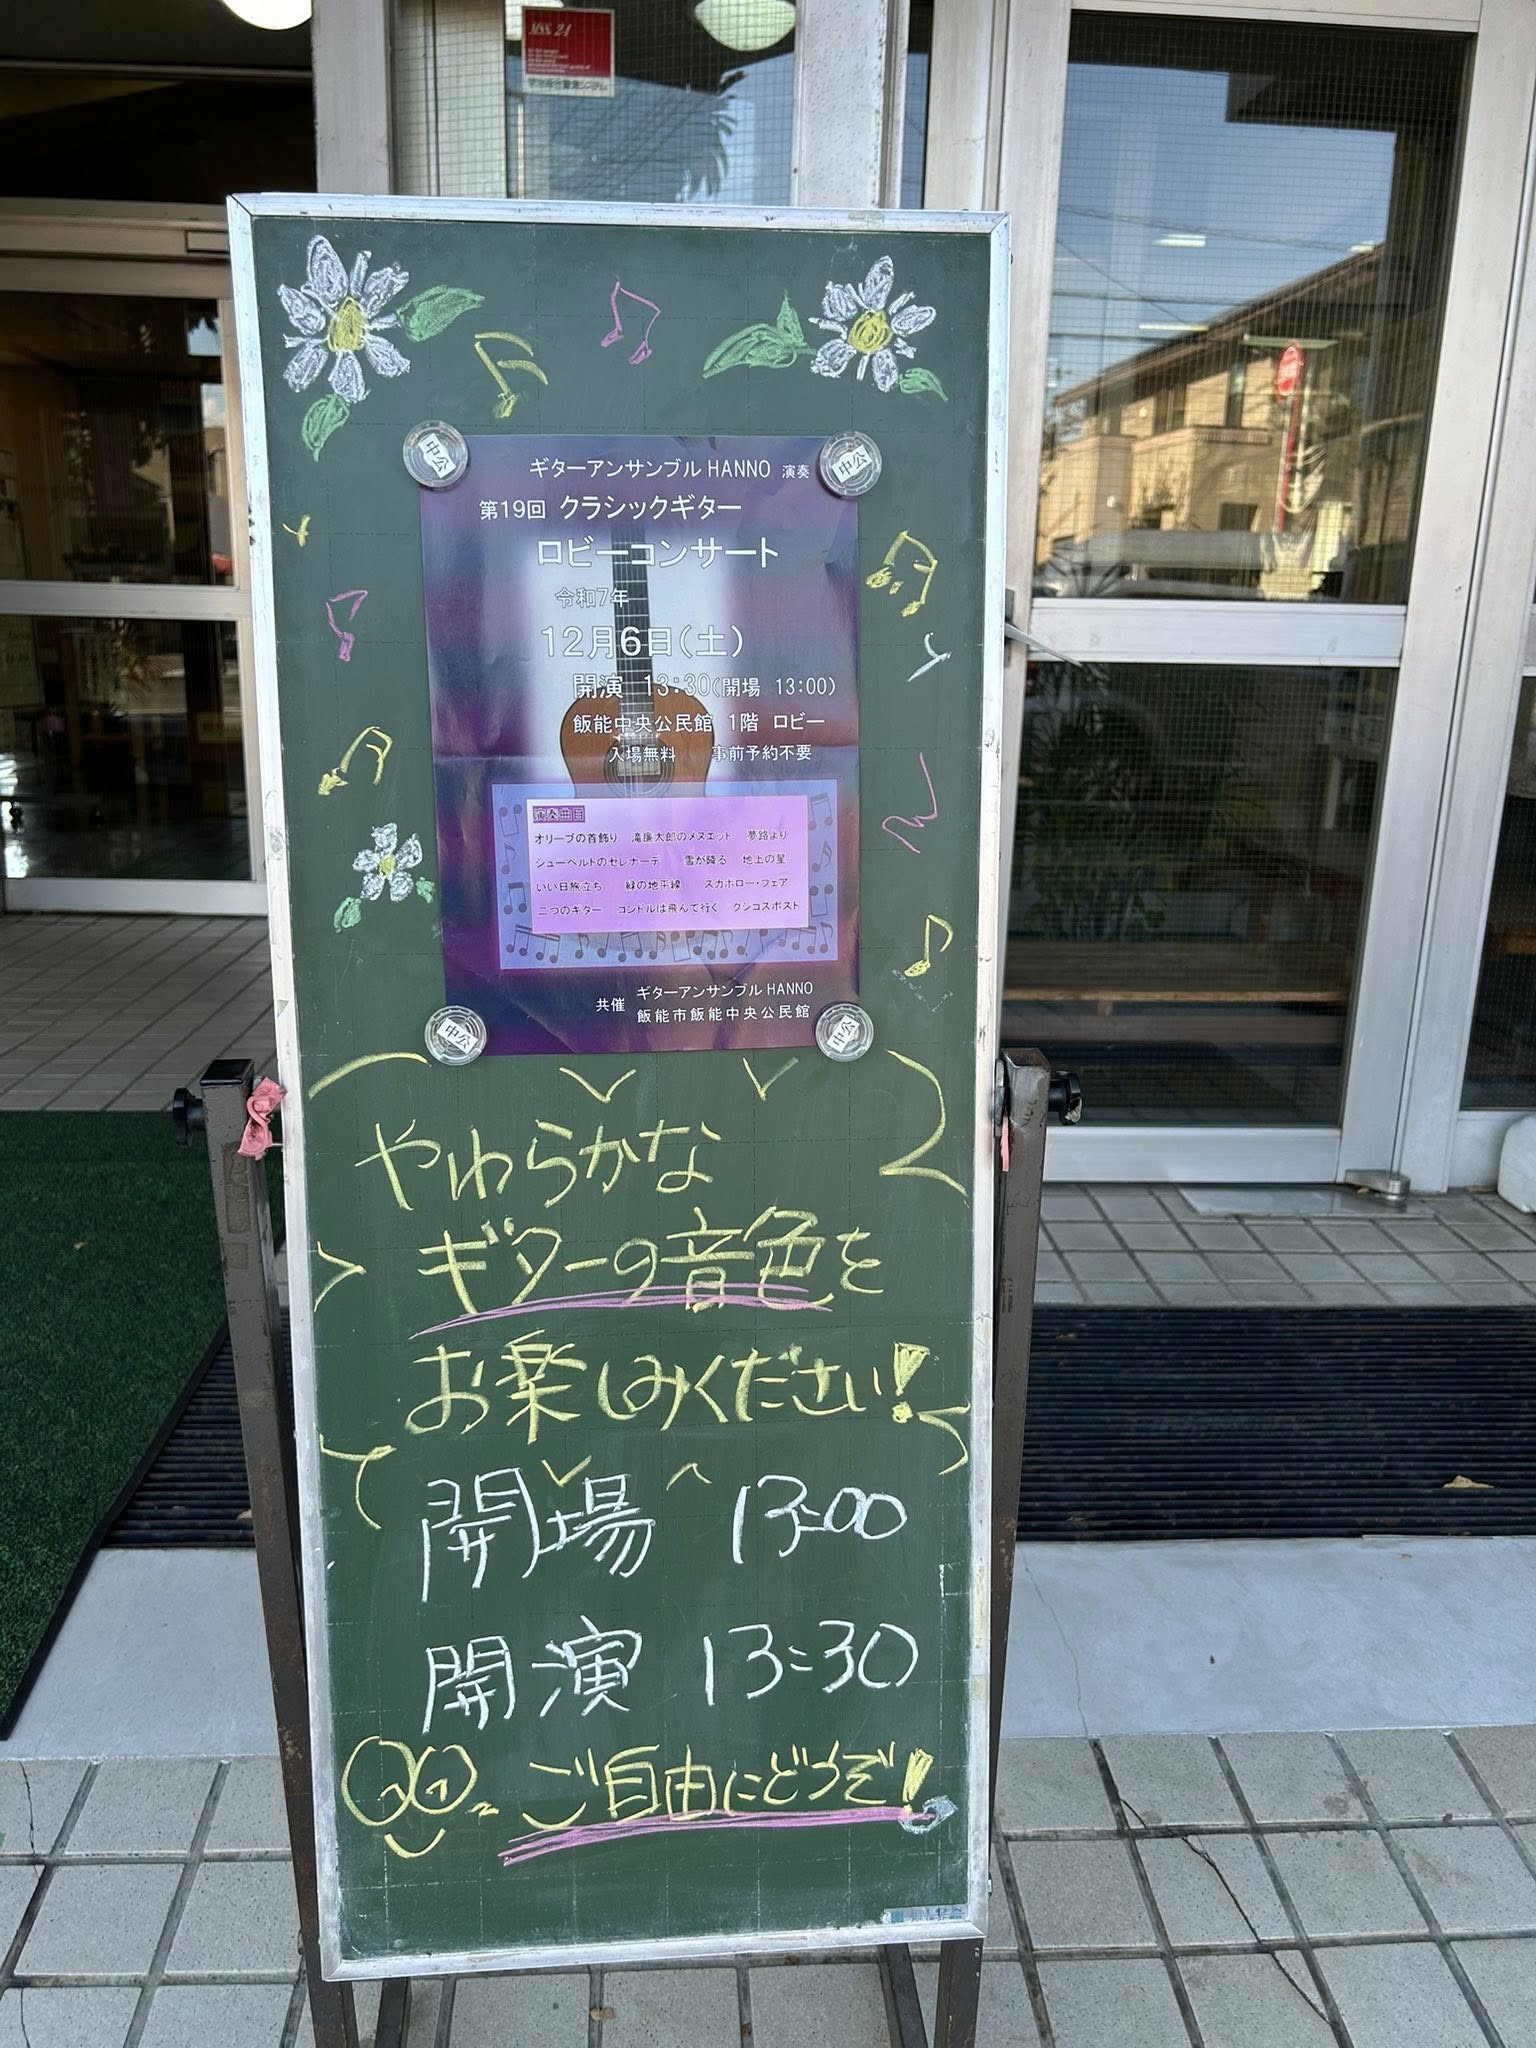 ギターアンサンブル HANNO 演奏
第19回 クラシックギター
ロビーコンサート
令和7年
12月6日(土)
開演 13:30(開場 13:00)
飯能中央公民館 1階 ロビー
入場無料 事前予約不要
演奏曲目
オリーブの首飾り 滝廉太郎のメヌエット 夢路より
シューベルトのセレナーデ 雪が降る 地上の星
いい日旅立ち 緑の地平線 スカボロー・フェア
二つのギター コンドルは飛んで行く クシコスポスト
共催 ギターアンサンブル HANNO
飯能市飯能中央公民館
中公
中公
中公
中公
やわらかな
ギターの音色を
お楽しみください!
開場 13:00
開演 13:30
ご自由にどうぞ!